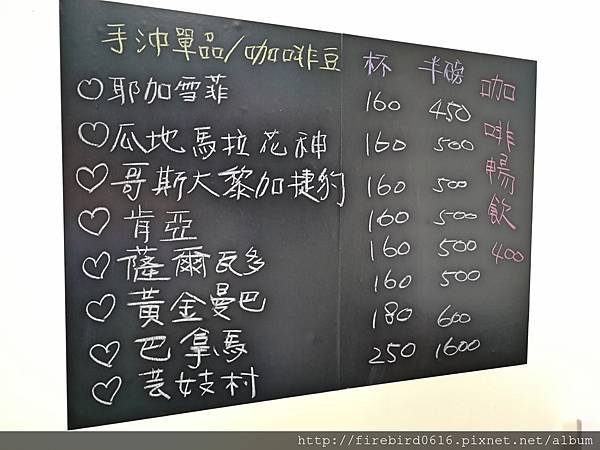 手沖單品/咖啡豆 杯 半磅
耶加雪菲 160 450
瓜地馬拉花神 160 500
哥斯大黎加捷豹 160 500
肯亞 160 500
薩爾瓦多 160 500
黃金曼巴 160 500
巴拿馬 180 600
芸妓村 250 1600
咖啡暢飲 400
http://firebird0616.pixnet.net/album